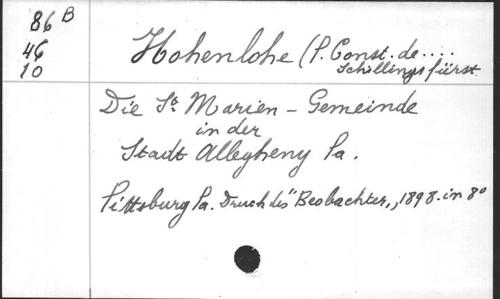 86 B
46
10
Hohenlohe (P. Const. de....
Schillingsfürst
Die St. Marien - Gemeinde
in der
Stadt Allegheny Pa.
Pittsburg Pa. Druck des "Beobachter,, 1898. in 8°